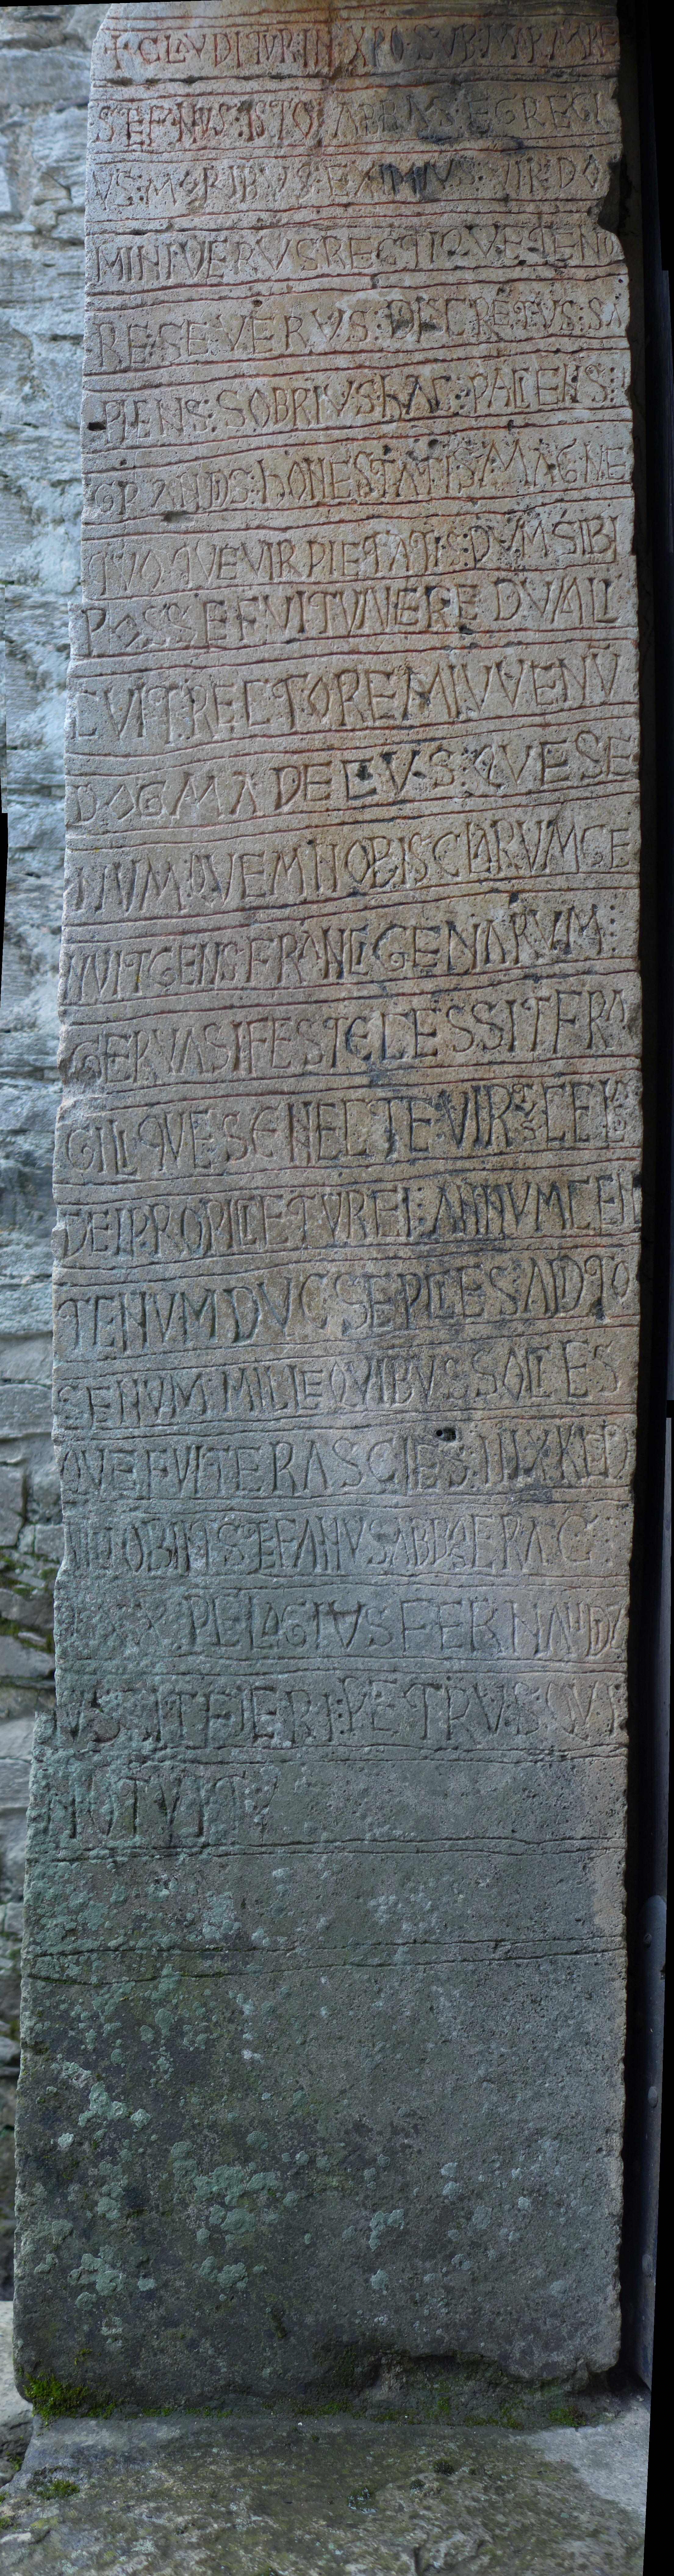 + CLAVDITVR IN XPO SVB MARMORE
STEFANVS ISTO ABBAS EGREGI
VS : MORIBVS : EXIMIVS : VIR DO
MINI VERVS RECTIQVE TENO
RE SEVERVS : DISCRETVS : SA
PIENS : SOBRIVS hAC : PACIENS :
GRANDIS : hONESTATIS : MAGNE
QVOQVE VIR PIETATIS : DVM SIBI
POSSE FVIT VIVERE DVM LI
CVIT RECTOREM IVVENV
DOGMA DECVS QVE SE
NVM : QVEM NOBIS CLARVM GE
NVIT GENS FRANCIGENARVM :
GERVASI FESTE CESSIT FRA
GILI QVE SENECTE : VIRTVS CELE
DEI PROPICIETVR EI : ANNVM CEN
TENVM DVC SEPCIES ADITO
SENVM : MILLE QVIBVS SOCIES
QVE FVIT ERA SCIES : IIIX KLD
IL OBIIT STEFANVS ABBAS ERA C :
LXX PELAGIVS FERNANDI
IVSSIT FIERI : PETRVS : QVI
NOTVIT